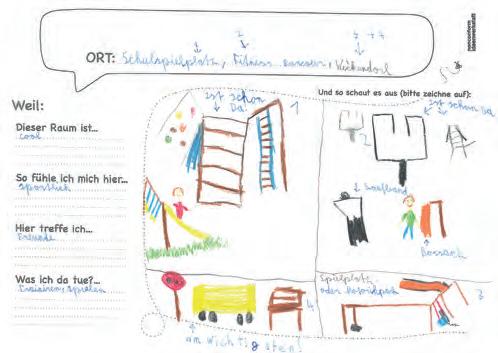 nonconform
ideenwerkstatt
2 3 + 4
ORT: Schulspielplatz, Fitness
Und so schaut es aus (bitte zeichne auf):
Weil:
ist schon
Da
1
ist schon Da
Dieser Raum ist...
cool
2
So fühle ich mich hier...
sportlich
Laufband
Hier treffe ich...
Freunde
Boxsack
Was ich da tue?...
trainieren, spielen
Spielplatz
oder Motorikpark
3
4
am wichtigsten!